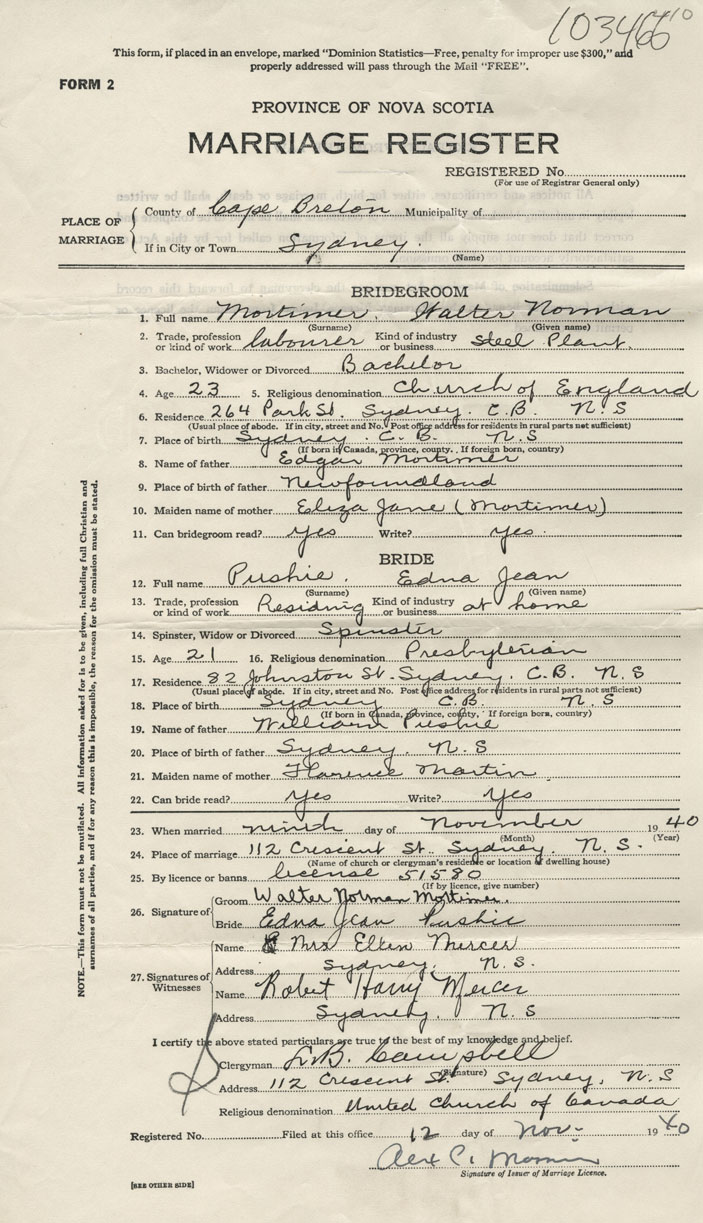 1034660
This form, if placed in an envelope, marked "Dominion Statistics—Free, penalty for improper use $300," and
properly addressed will pass through the Mail "FREE".
FORM 2
PROVINCE OF NOVA SCOTIA
MARRIAGE REGISTER
REGISTERED No.
(For use of Registrar General only)
PLACE OF MARRIAGE
County of Cape Breton Municipality of
If in City or Town Sydney.
(Name)
BRIDEGROOM
1. Full name Mortimer. Walter Norman
(Surname) (Given name)
2. Trade, profession or kind of work labourer Kind of industry or business Steel Plant.
3. Bachelor, Widower or Divorced Bachelor
4. Age 23 5. Religious denomination Church of England
6. Residence 264 Park St. Sydney. C.B. N.S
(Usual place of abode. If in city, street and No. Post office address for residents in rural parts not sufficient)
7. Place of birth Sydney. C.B. N.S
(If born in Canada, province, county. If foreign born, country)
8. Name of father Edgar Mortimer
9. Place of birth of father Newfoundland
10. Maiden name of mother Eliza Jane (Mortimer)
11. Can bridegroom read? yes Write? yes.
BRIDE
12. Full name Pushie. Edna Jean
(Surname) (Given name)
13. Trade, profession or kind of work Residing Kind of industry or business at home
14. Spinster, Widow or Divorced Spinster
15. Age 21 16. Religious denomination Presbyterian
17. Residence 82 Johnston St. Sydney. C.B. N.S
(Usual place of abode. If in city, street and No. Post office address for residents in rural parts not sufficient)
18. Place of birth Sydney C.B. N.S
(If born in Canada, province, county. If foreign born, country)
19. Name of father William Pushie
20. Place of birth of father Sydney. N.S
21. Maiden name of mother Florence Martin
22. Can bride read? Yes Write? Yes
23. When married ninth day of November 1940
(Month) (Year)
24. Place of marriage 112 Crescient St. Sydney. N.S.
(Name of church or clergyman's residence or location of dwelling house)
25. By licence or banns license 51580
(If by licence, give number)
26. Signature of
Groom Walter Norman Mortimer.
Bride Edna Jean Pushie
27. Signatures of Witnesses
Name Mrs Ellen Mercer
Address Sydney, N.S.
Name Robert Harry Mercer
Address Sydney. N.S
I certify the above stated particulars are true to the best of my knowledge and belief.
Clergyman L.B. Campbell
(Signature)
Address 112 Crescent St Sydney, N.S
Religious denomination United Church of Canada
Registered No. Filed at this office 12 day of Nov- 1940
Alex C.
Signature of Issuer of Marriage Licence.
[SEE OTHER SIDE]
NOTE.—This form must not be mutilated. All information asked for is to be given, including full Christian and
surnames of all parties, and if for any reason this is impossible, the reason for the omission must be stated.